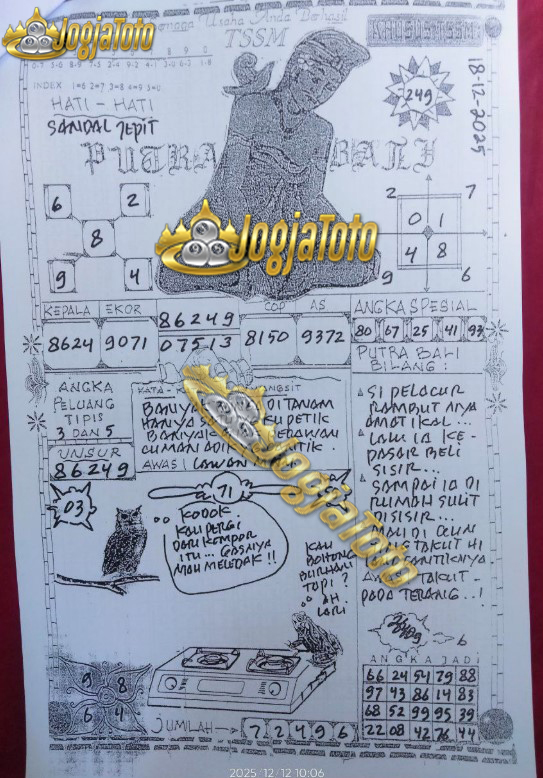 JogjaToto
Semoga Usaha Anda Berhasil
TSSM
KHUSUS TSSM
INDEX 1=6 2=7 3=8 4=9 5=0
HATI - HATI
SANDAL JEPIT
249
18-12-2025
PUTRA BALI
6 2
8
9 4
2 7
0 1
4 8
9 6
JogjaToto
KEPALA EKOR
86249
COP AS
ANGKA SPESIAL
8624 9071
07513
8150 9372
80 67 25 41 93
PUTRA BALI
BILANG :
ANGKA
PELUANG
TIPIS
3 DAN 5
UNSUR
86249
DI TANAM
HANYA
PETIK
CUMAN
AWAS! LAWAN
SI PELACUR
RAMBUT NYA
AMAT IKAL...
LALU IA KE-
PASAR BELI
SISIR...
SAMPAI IA DI
RUMAH SULIT
DISISIR...
TAKUT
PADA TERANG..!
JogjaToto
03
71
KODOK.
KAU PERGI
DARI KOMPOR
ITU... GASNYA
MAU MELEDAK!!
KAU
BOHONG
BURHAN
TOPI ?
AH.
LARI
6
ANGKA JADI
66 24 54 79 88
97 43 86 14 83
68 52 99 95 39
22 08 42 76 44
9 8
6 4
JUMLAH → 7 2 4 9 6
2025/12/12 10:06